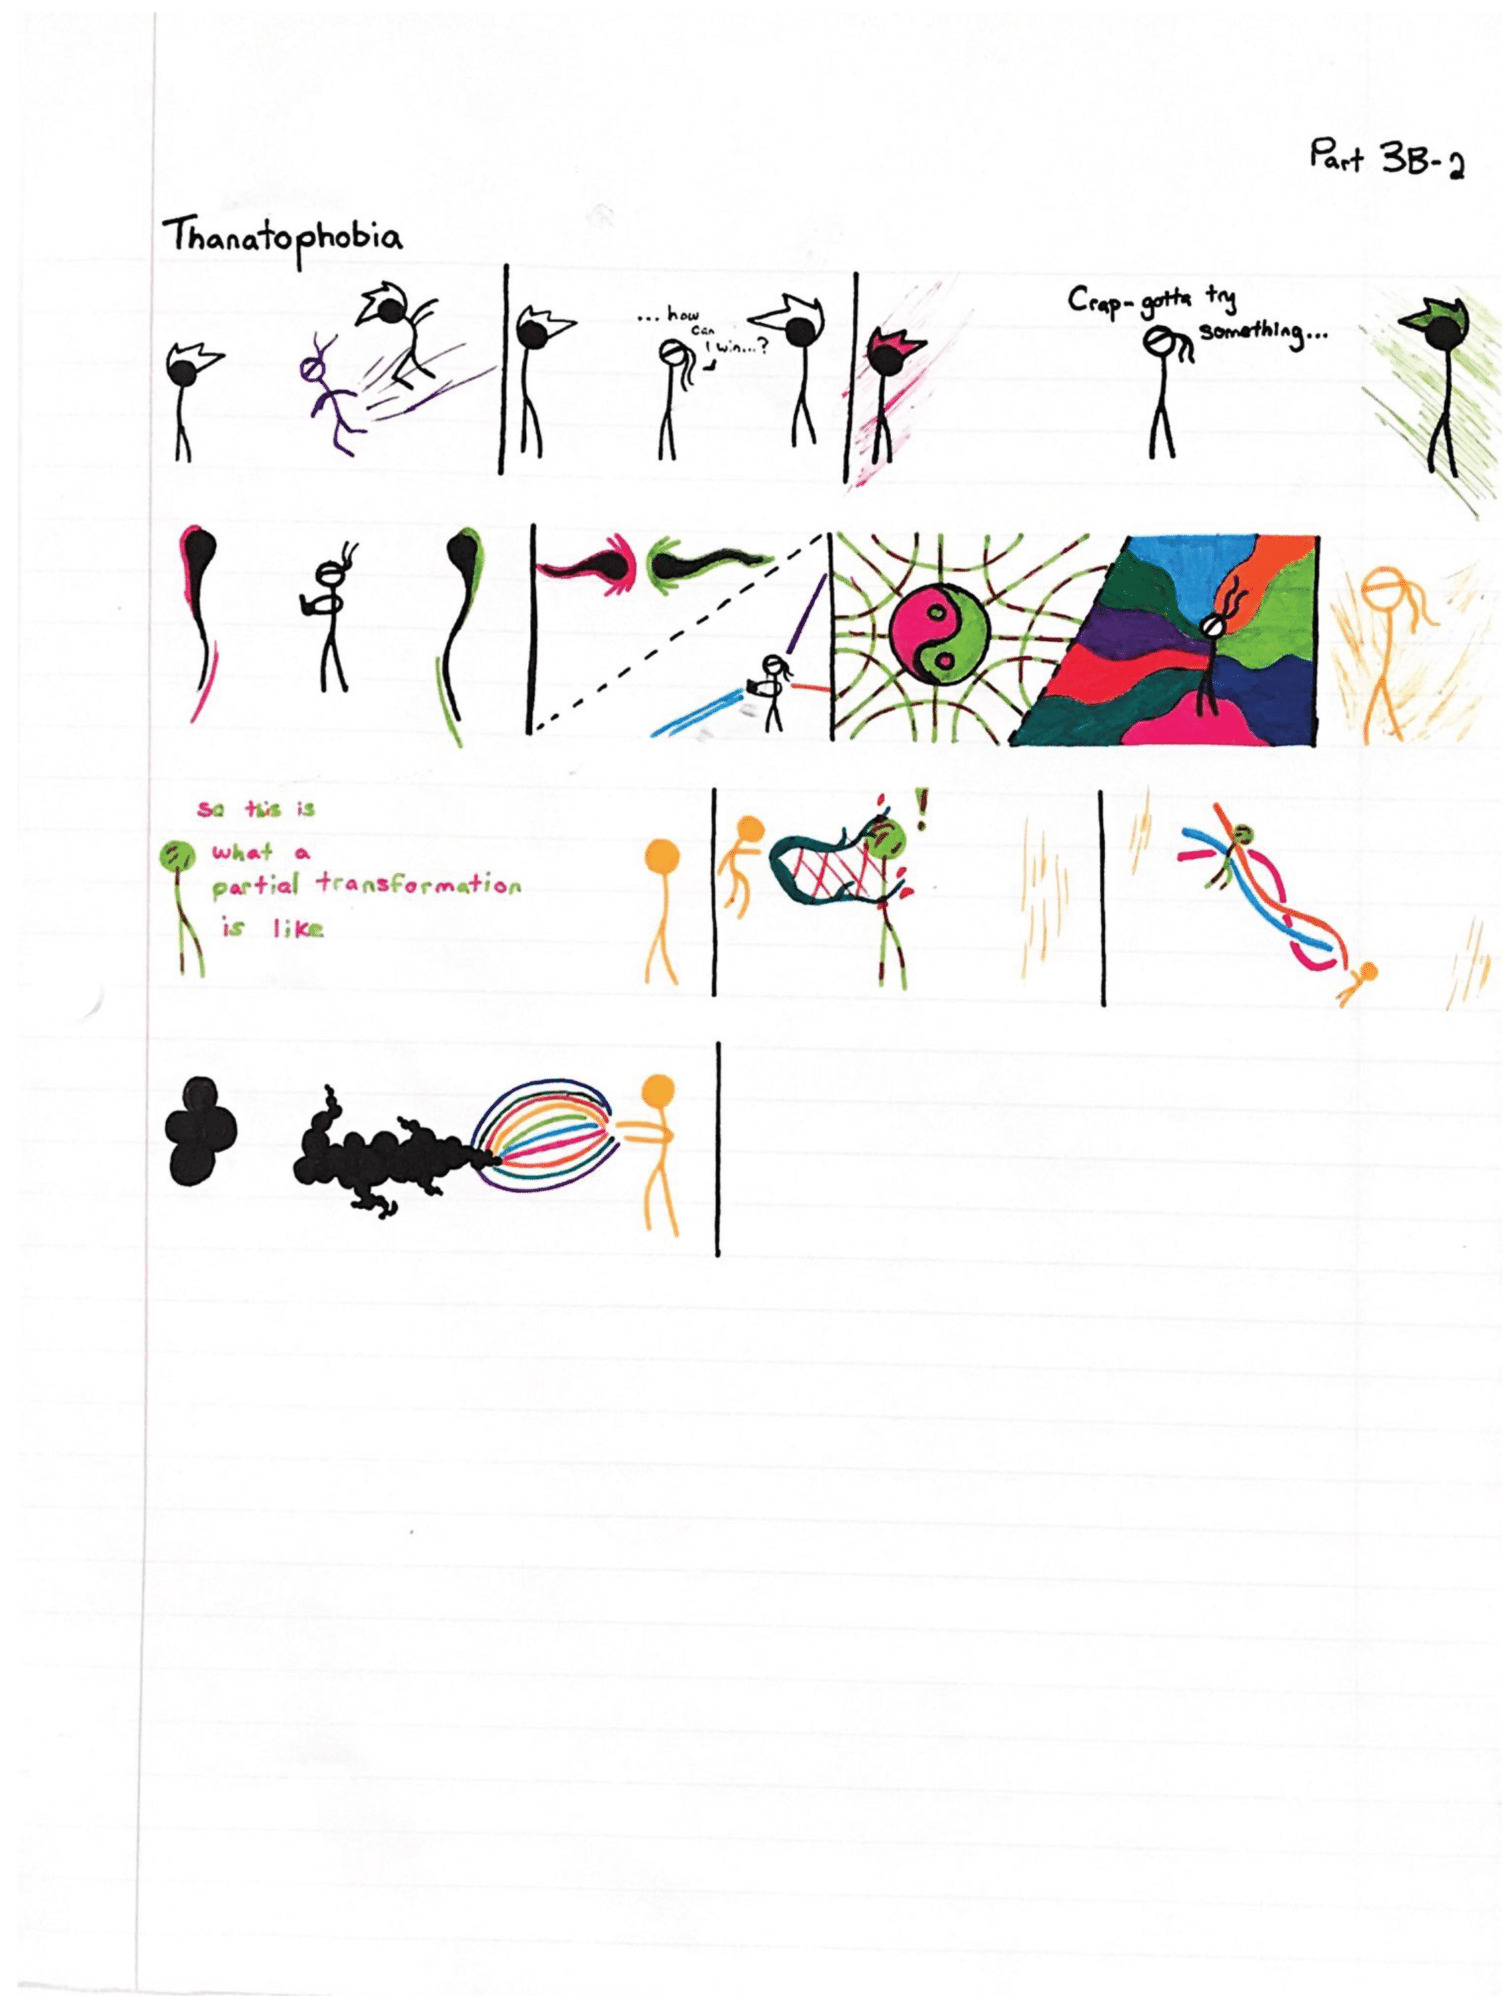 Part 3B-2
Thanatophobia
... how
can
I win...?
Crap-gotta try
something...
So this is
what a
partial transformation
is like
!